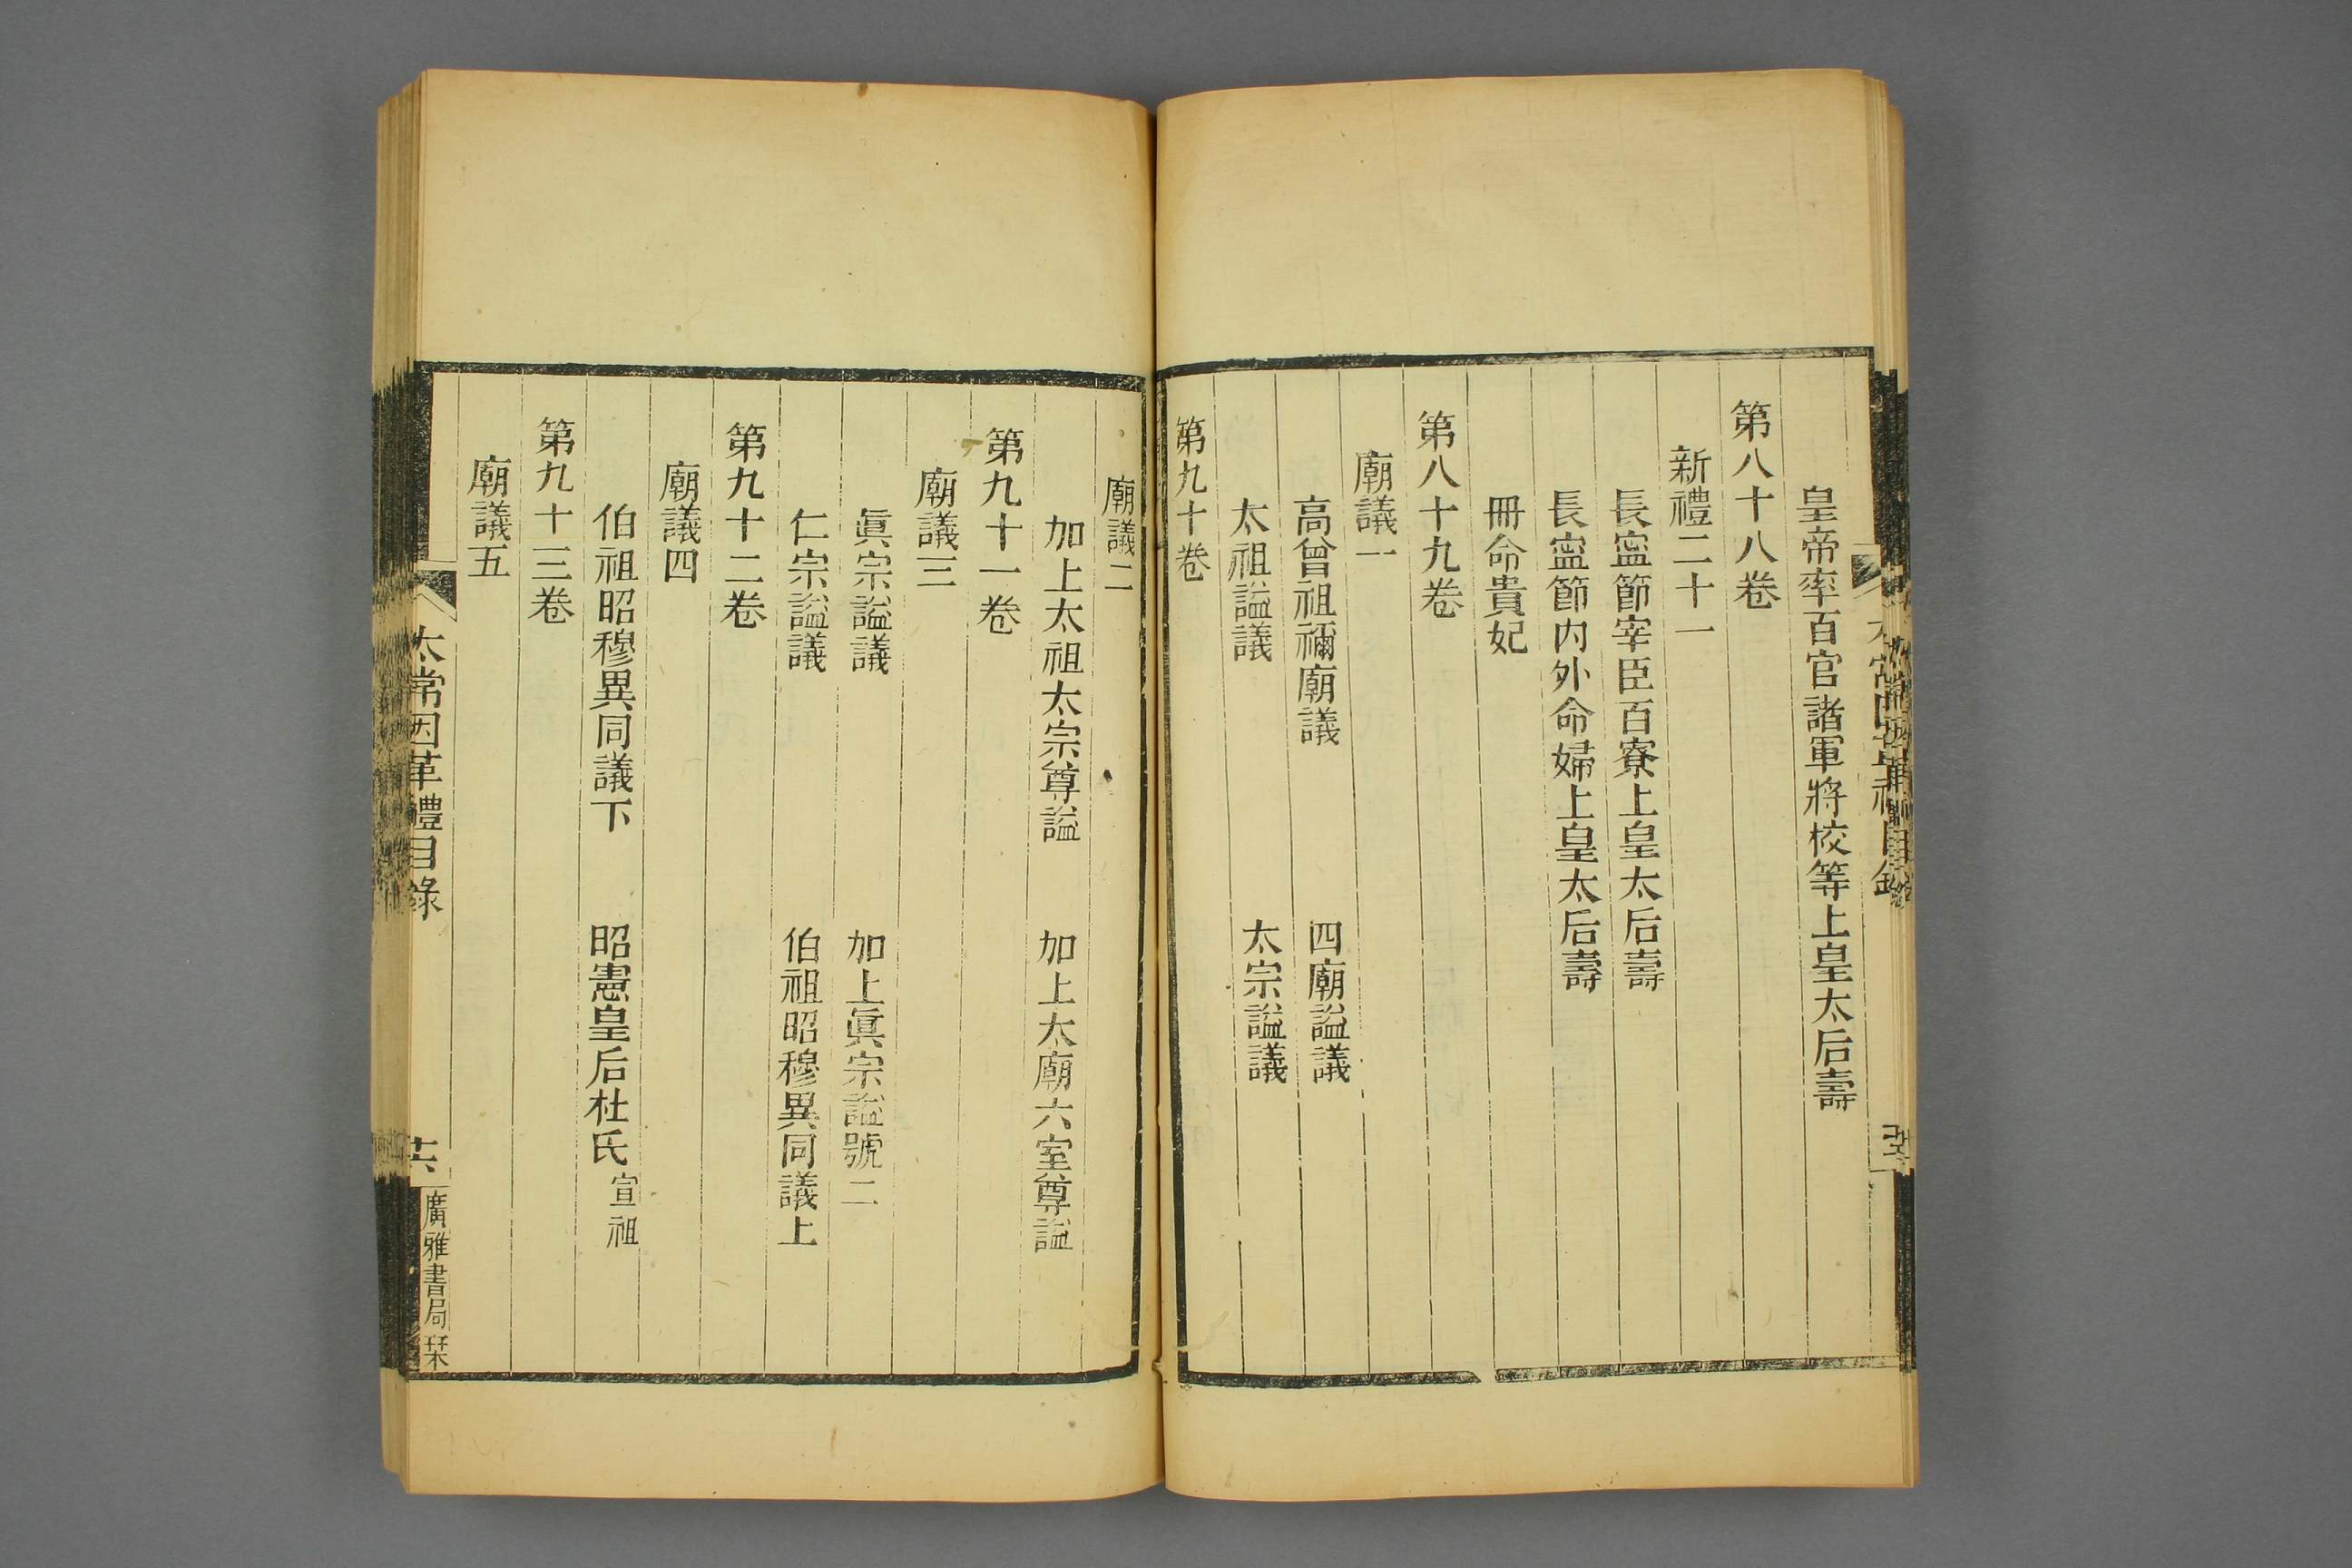 皇帝率百官諸軍將校等上皇太后壽
第八十八卷
新禮二十一
長寍節宰臣百寮上皇太后壽
長寍節内外命婦上皇太后壽
冊命貴妃
第八十九卷
廟議一
高曾祖禰廟議　四廟謚議
太祖謚議　太宗謚議
第九十卷
廟議二
加上太祖太宗尊謚　加上太廟六室尊謚
第九十一卷
廟議三
眞宗謚議　加上眞宗謚號二
仁宗謚議　伯祖昭穆異同議上
第九十二卷
廟議四
伯祖昭穆異同議下　昭憲皇后杜氏宣祖
第九十三卷
廟議五
太常因革禮目錄
十六
廣雅書局栞